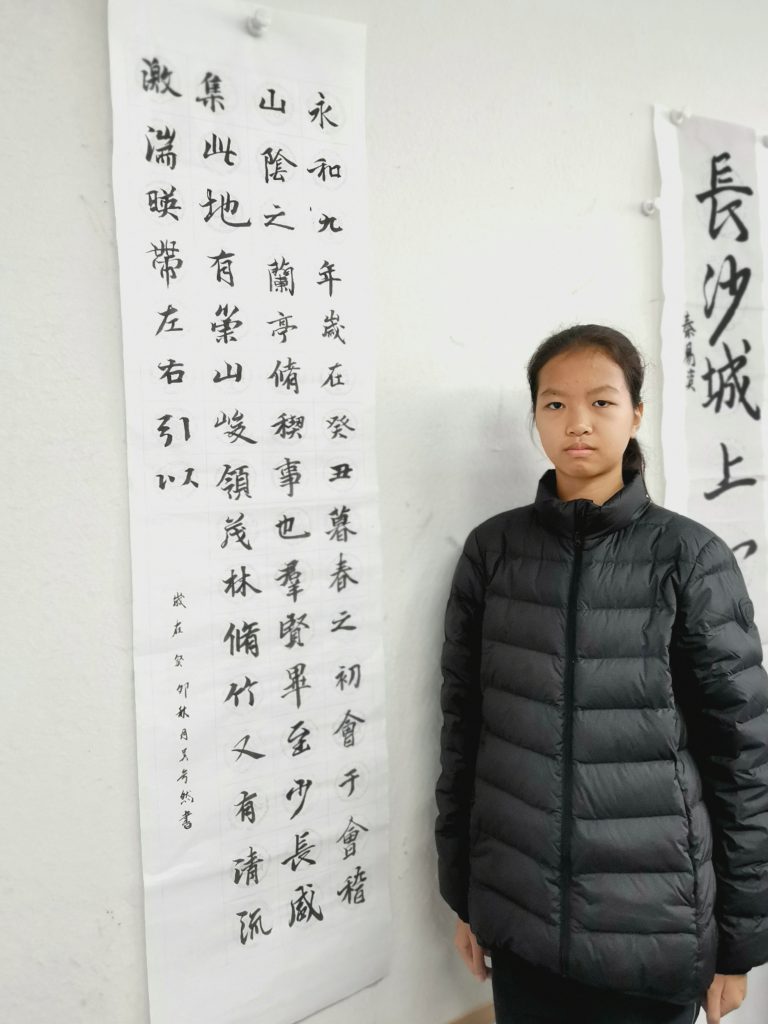 永和九年歲在癸丑暮春之初會于會稽
山陰之蘭亭脩稧事也羣賢畢至少長咸
集此地有崇山峻領茂林脩竹又有清流
激湍暎帶左右引以
歲在癸卯秋月吴奇然書
長沙城上
秦易寅